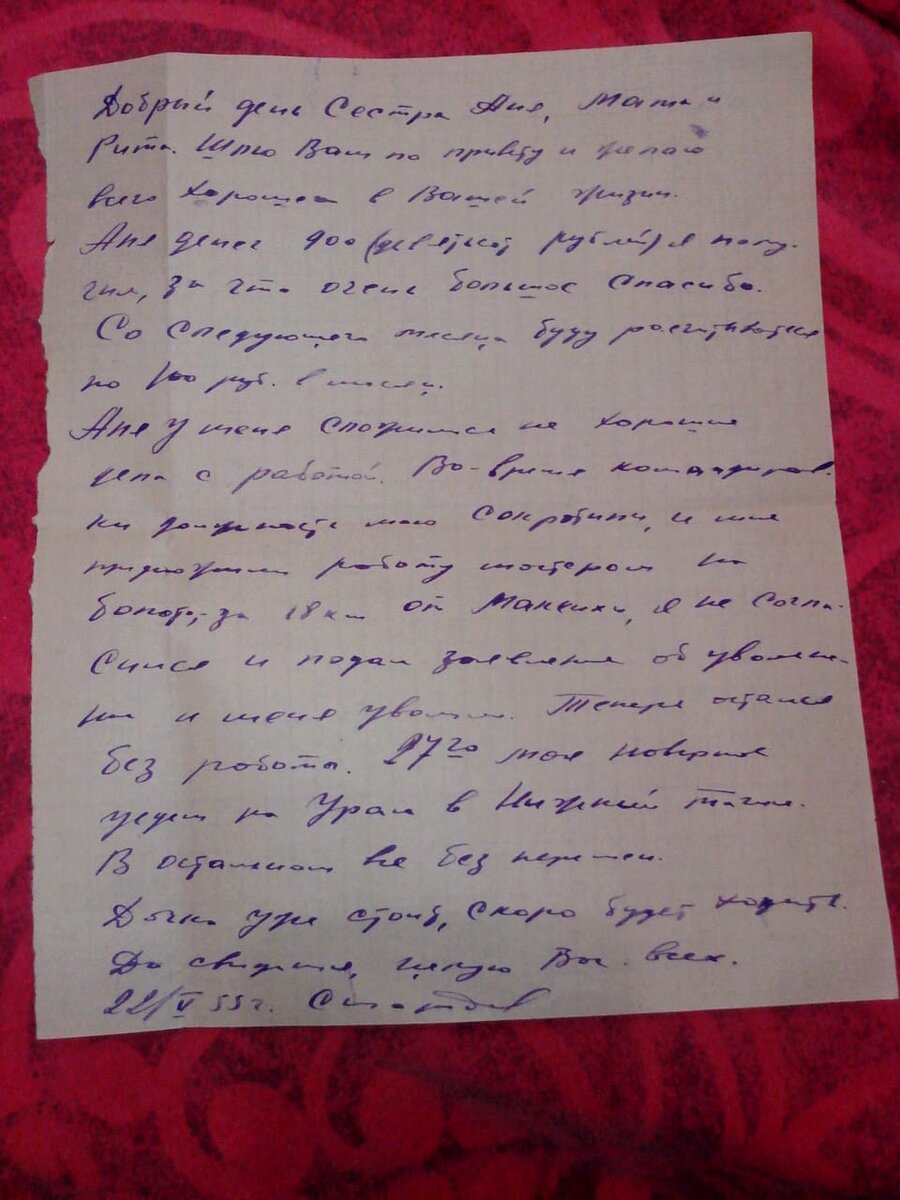 Добрый день Сестра Аня, Мама и
Рита. Шлю Вам по привету и желаю
всего хорошего в Вашей жизни.
Аня денег 900 (девятьсот рублей) я полу-
чил, за что очень большое спасибо.
Со следующего месяца буду расчитываться
по 100 руб. в месяц.
Аня у меня сложились не хорошие
дела с работой. Во-время командиров-
ки должность мою сократили, и мне
предложили работу мастером на
болоте, за 18 км от Манчихи, я не согла-
сился и подал заявление об увольне-
нии и меня уволили. Теперь остался
без работы. 27го мая наверное
уедем на Урал в Нижний Тагил.
В остальном все без перемен.
Дочка уже стоит, скоро будет ходить.
До свидания, целую Вас всех.
22/V 55г.